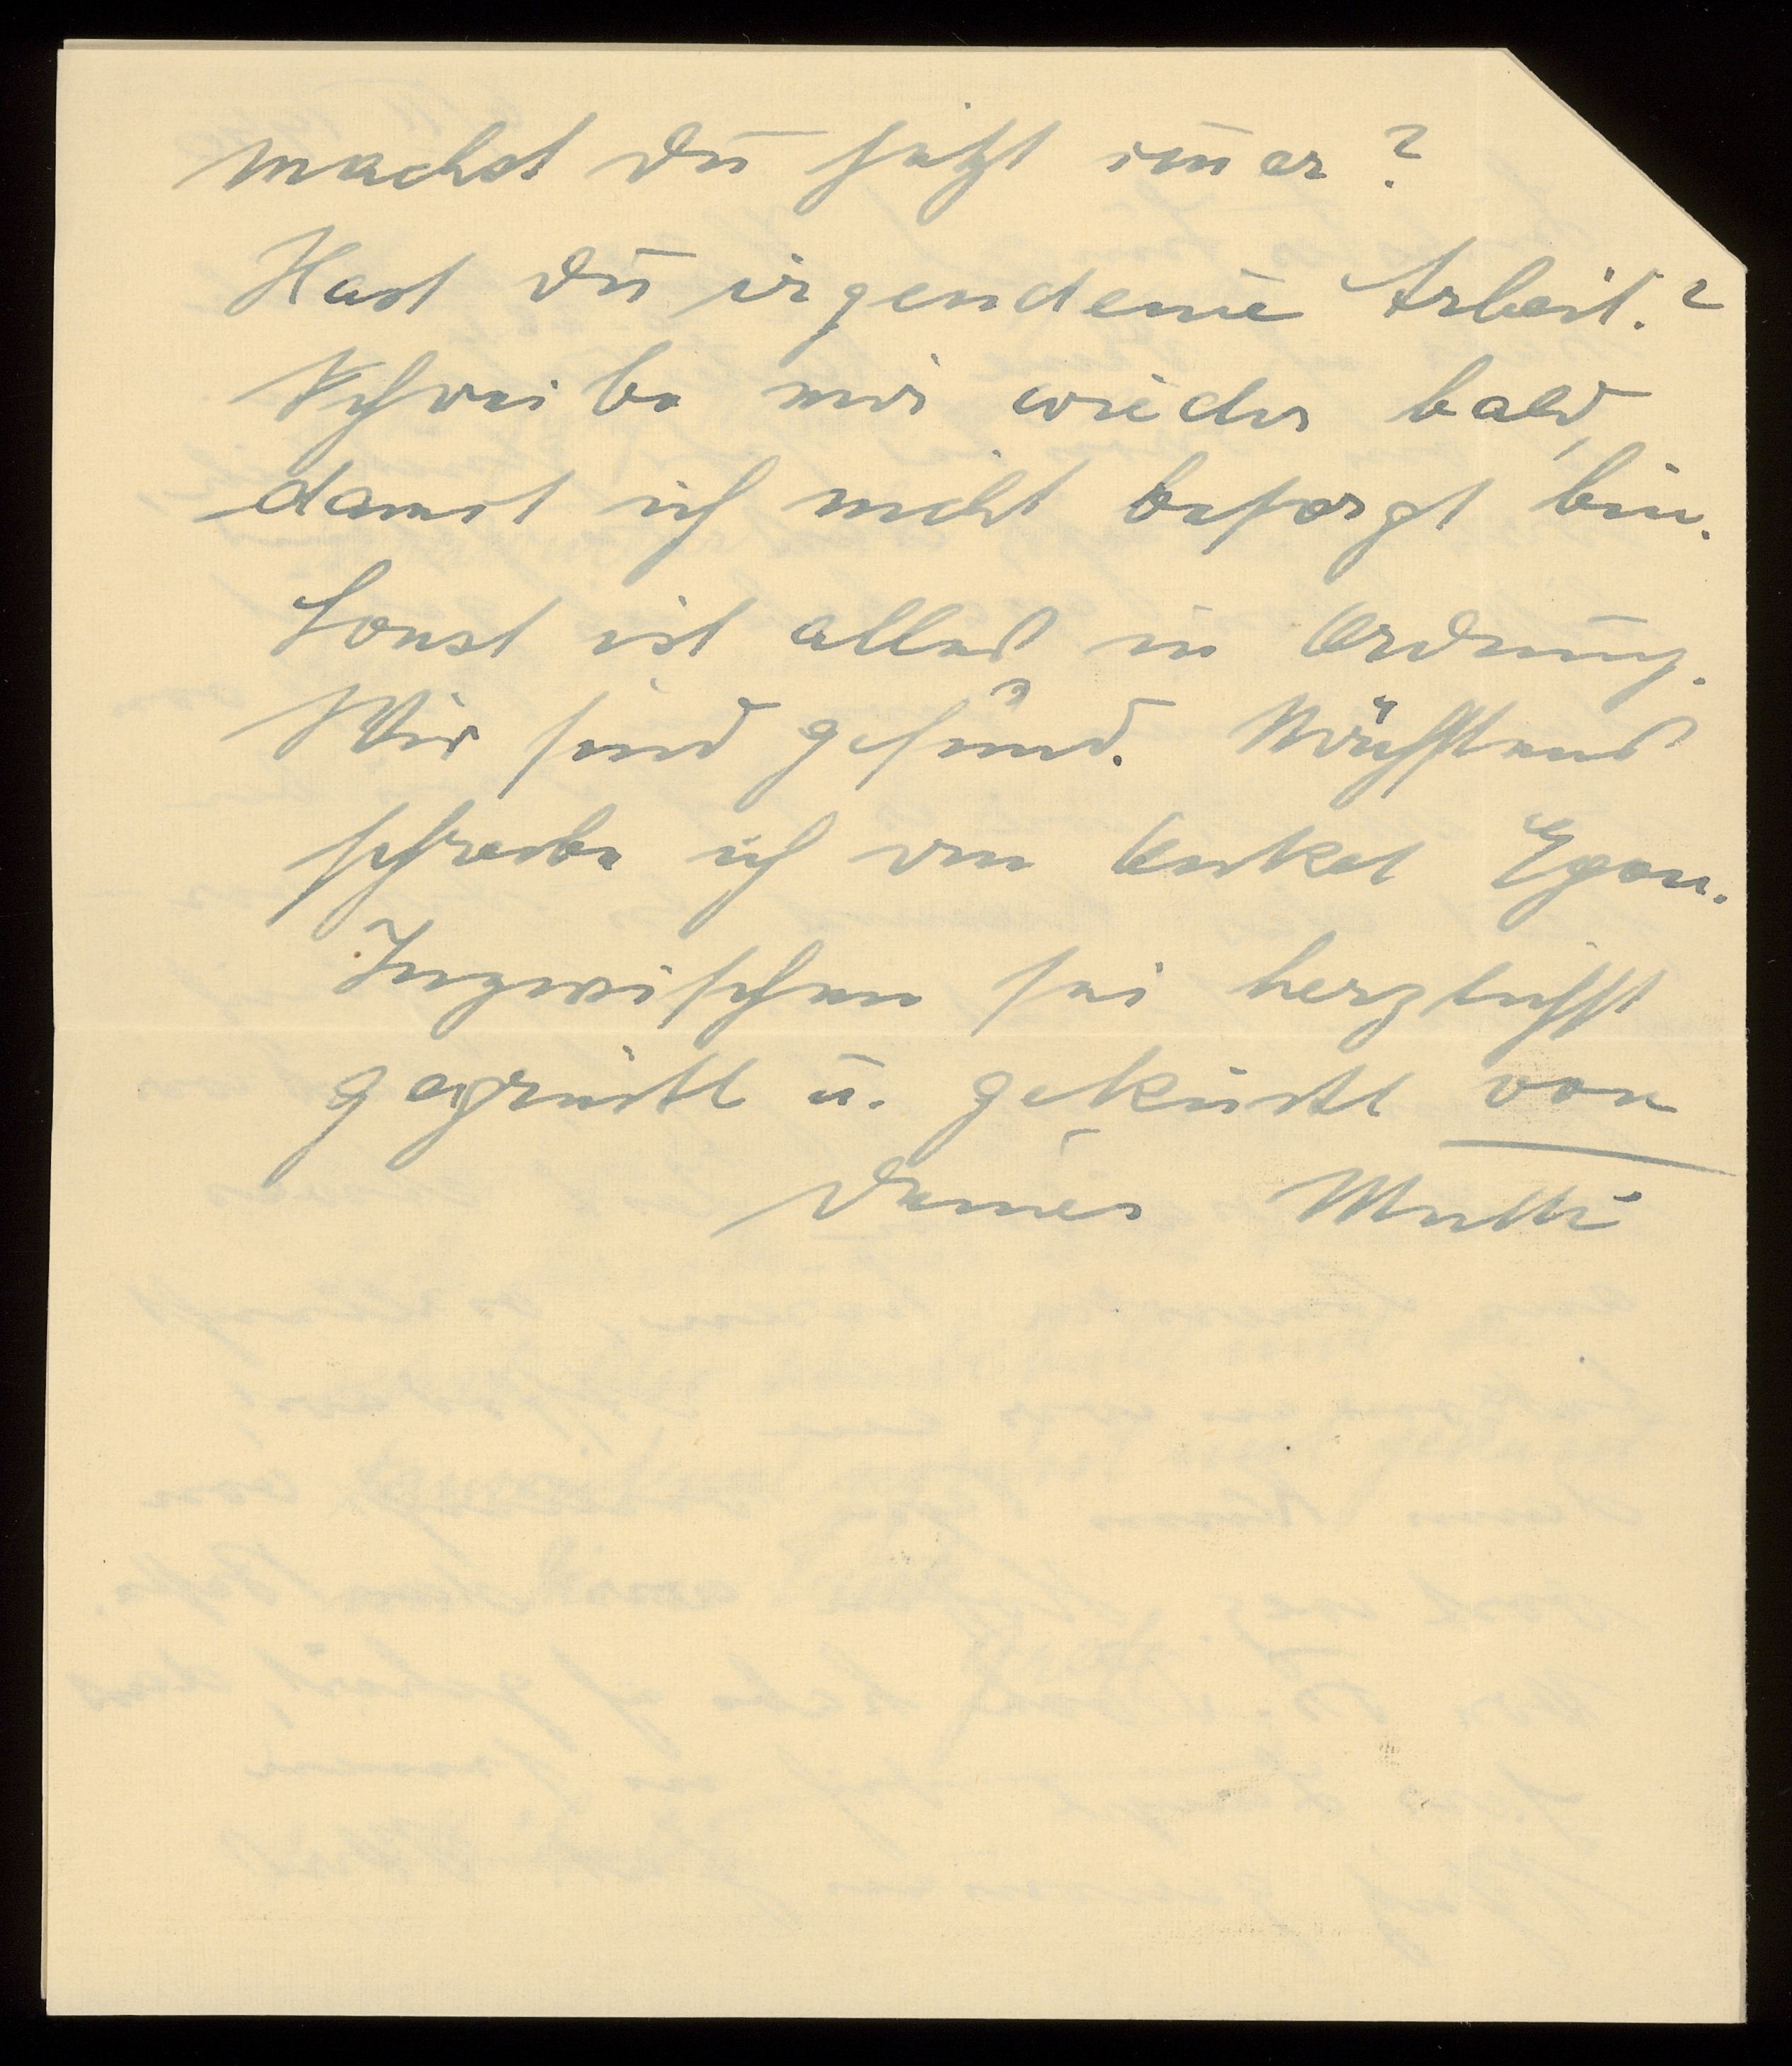 machst Du jetzt im̅er?
Hast Du irgendeine Arbeit.?
Schreibe mir wieder bald,
damit ich nicht besorgt bin.
Sonst ist alles in Ordnung.
Wir sind gesund. Nächstens
schreibe ich von Onkel Egon.
Inzwischen sei herzlichst
gegrüßt u. geküßt von
Deiner Mutti